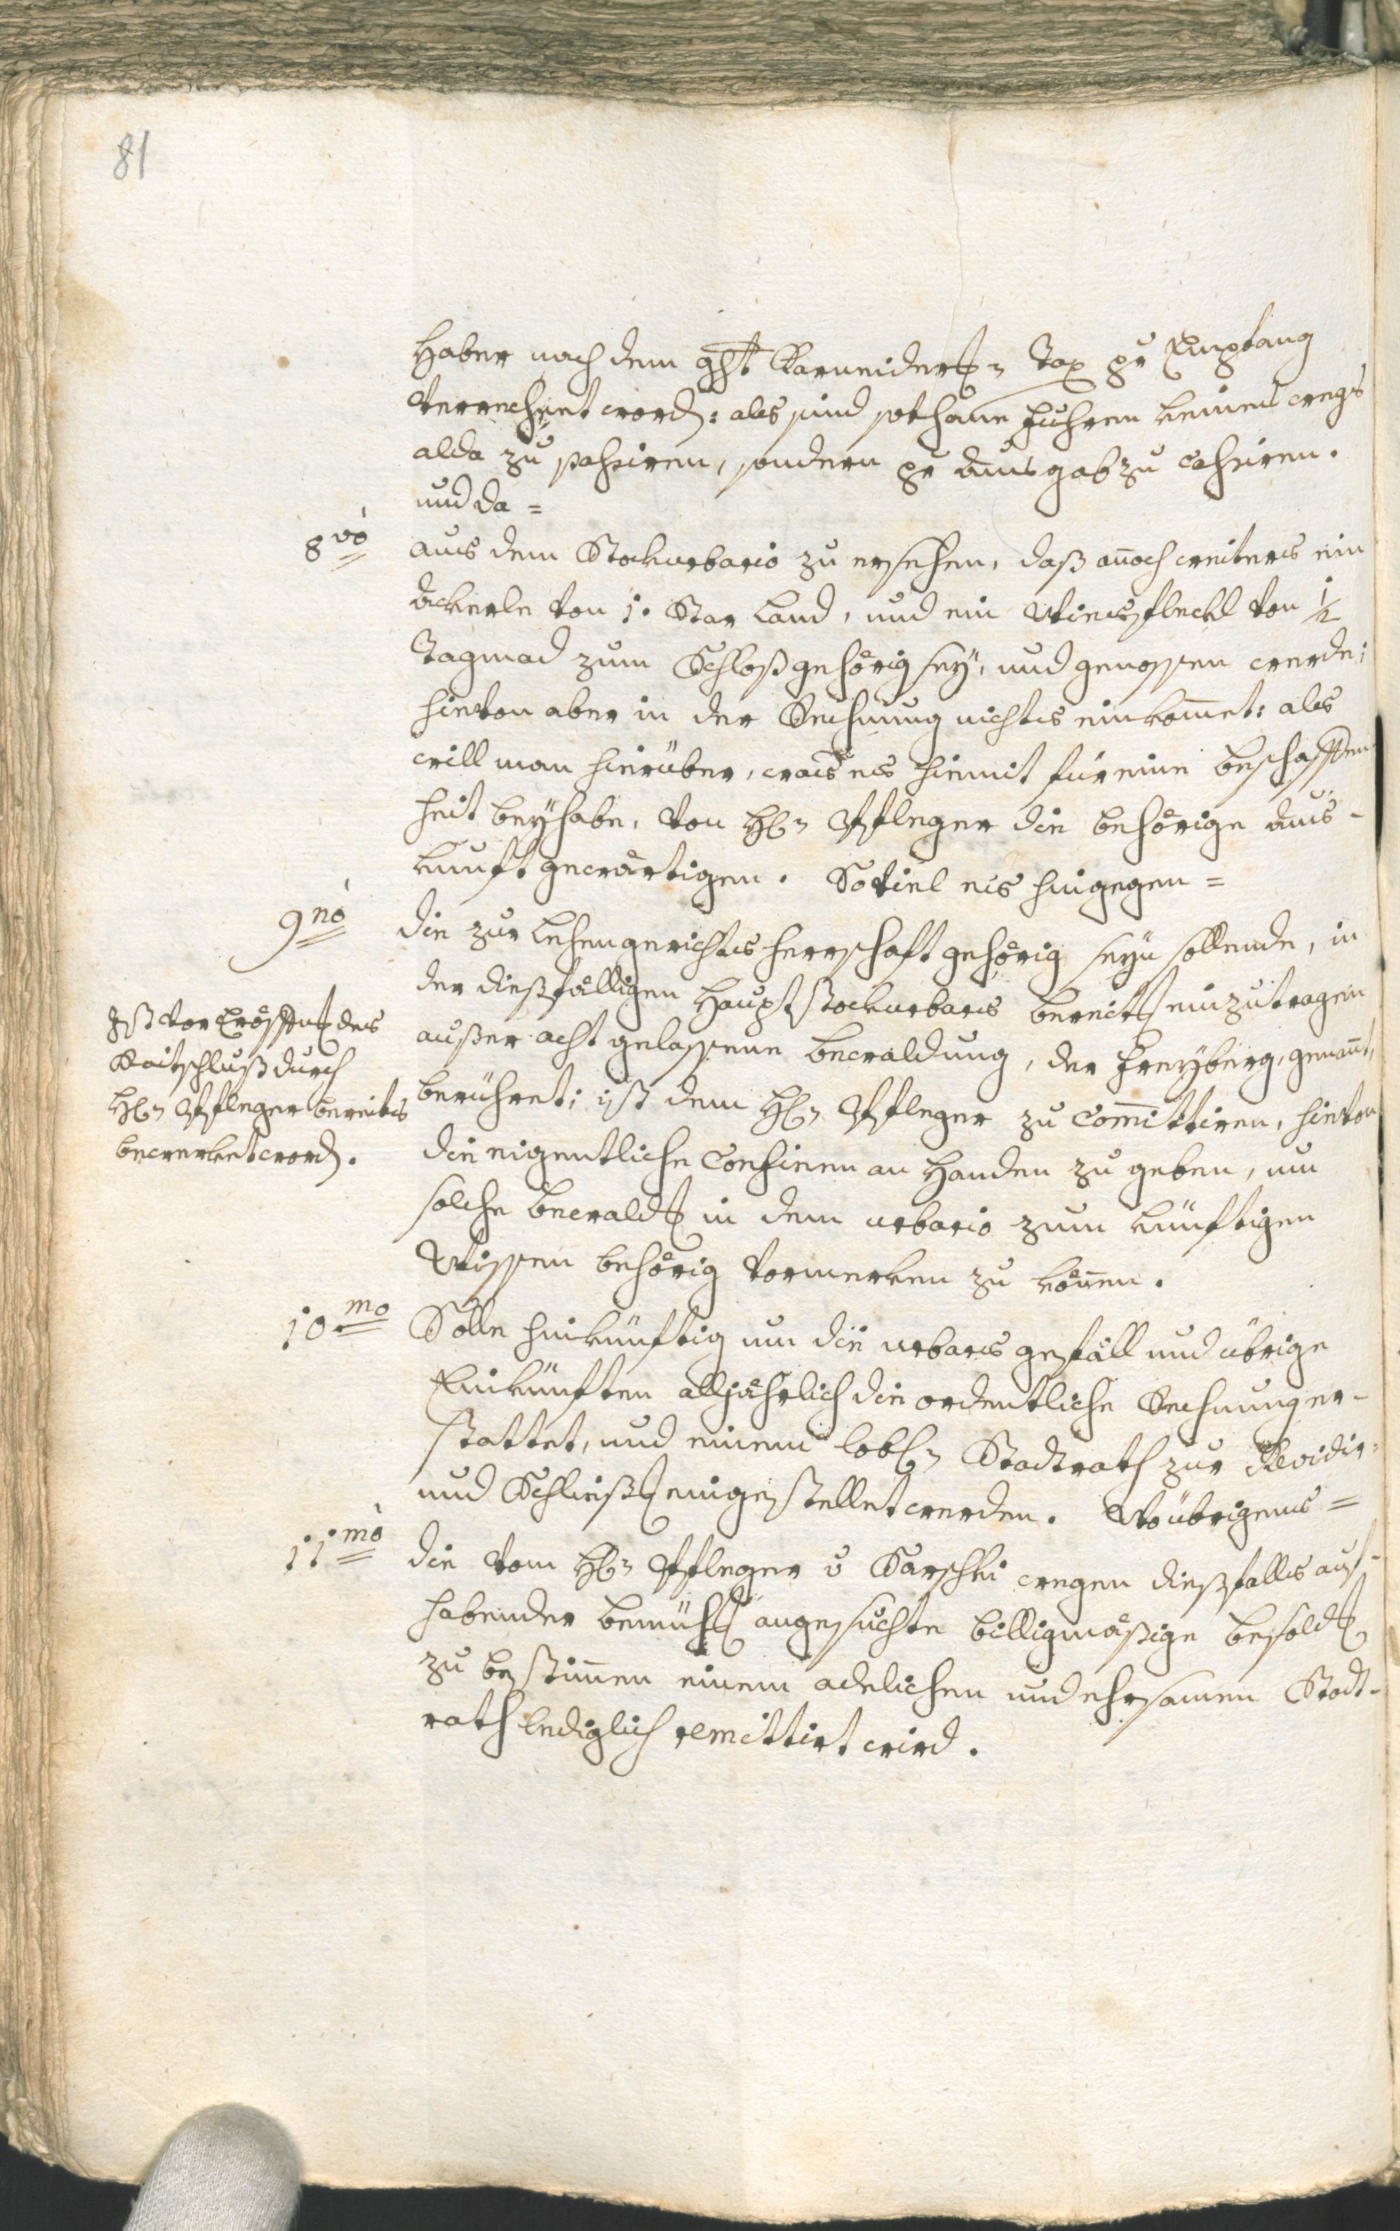 81
Haber nach dem Karneider Tax pr Empfang
verrechnet word: als sind sothane Fuhren keineswegs
alda zu passiren, sondern pr ausgab zu cassiren.
und da=
8vo
aus dem Stockurbario zu ersehen, daß anoch weiters ein
ackerle von 1. Star Land, und ein Wiesfleckl von 1/2
Tagmad zum Schloß gehörig seÿ, und genossen werde;
hievon aber in der Rechnung nichts einkomet: als
will man hierüber, was es hiemit für eine beschaffen-
heit beÿhabe, von H. Pfleger die behörige aus-
kunft gewärtigen. Soviel es hingegen=
9no
die zur Lehengerichts herrschaft gehörig seyn sollende, in
der dießfälligen Haupt stockurbars bereitt einzutragen
außer acht gelassene bewaldung, der Freÿberg, genant,
berühret; ist dem H. Pfleger zu Comittiren, hievon
die eigentliche Confinen an Handen zu geben, um
solche bewald in dem urbario zum künftigen
Wissen behörig vormerken zu könen.
Ist vor Eröffn des
Raitschluß durch
H. Pfleger bereits
bewerket word.
10mo
Solle hinkünftig um die urbars gefäll und übrige
Einkünften alljährlich die ordentliche Rechnung er-
stattet, und einem löbl Stadtrath zur Revidir-
und Schließ eingestellet werden. Wo übrigens=
11mo
die vom H. Pfleger v Karschi wegen dießfalls auf-
habender bemüh angesuchte billigmäßige besold
zu bestimen einem adelichen und ehrsamen Stadt-
rath lediglich remittirt wird.